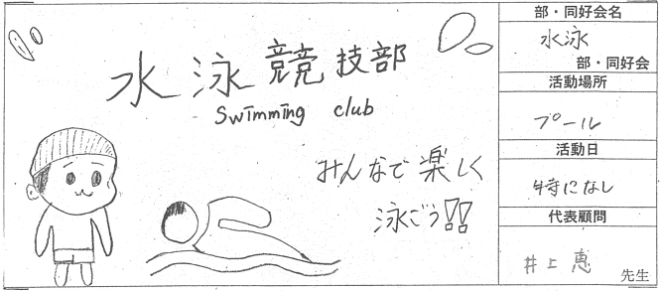 水泳競技部
Swimming club
みんなで楽しく
泳ごう!!
部・同好会名
水泳
部・同好会
活動場所
プール
活動日
特になし
代表顧問
井上 恵
先生